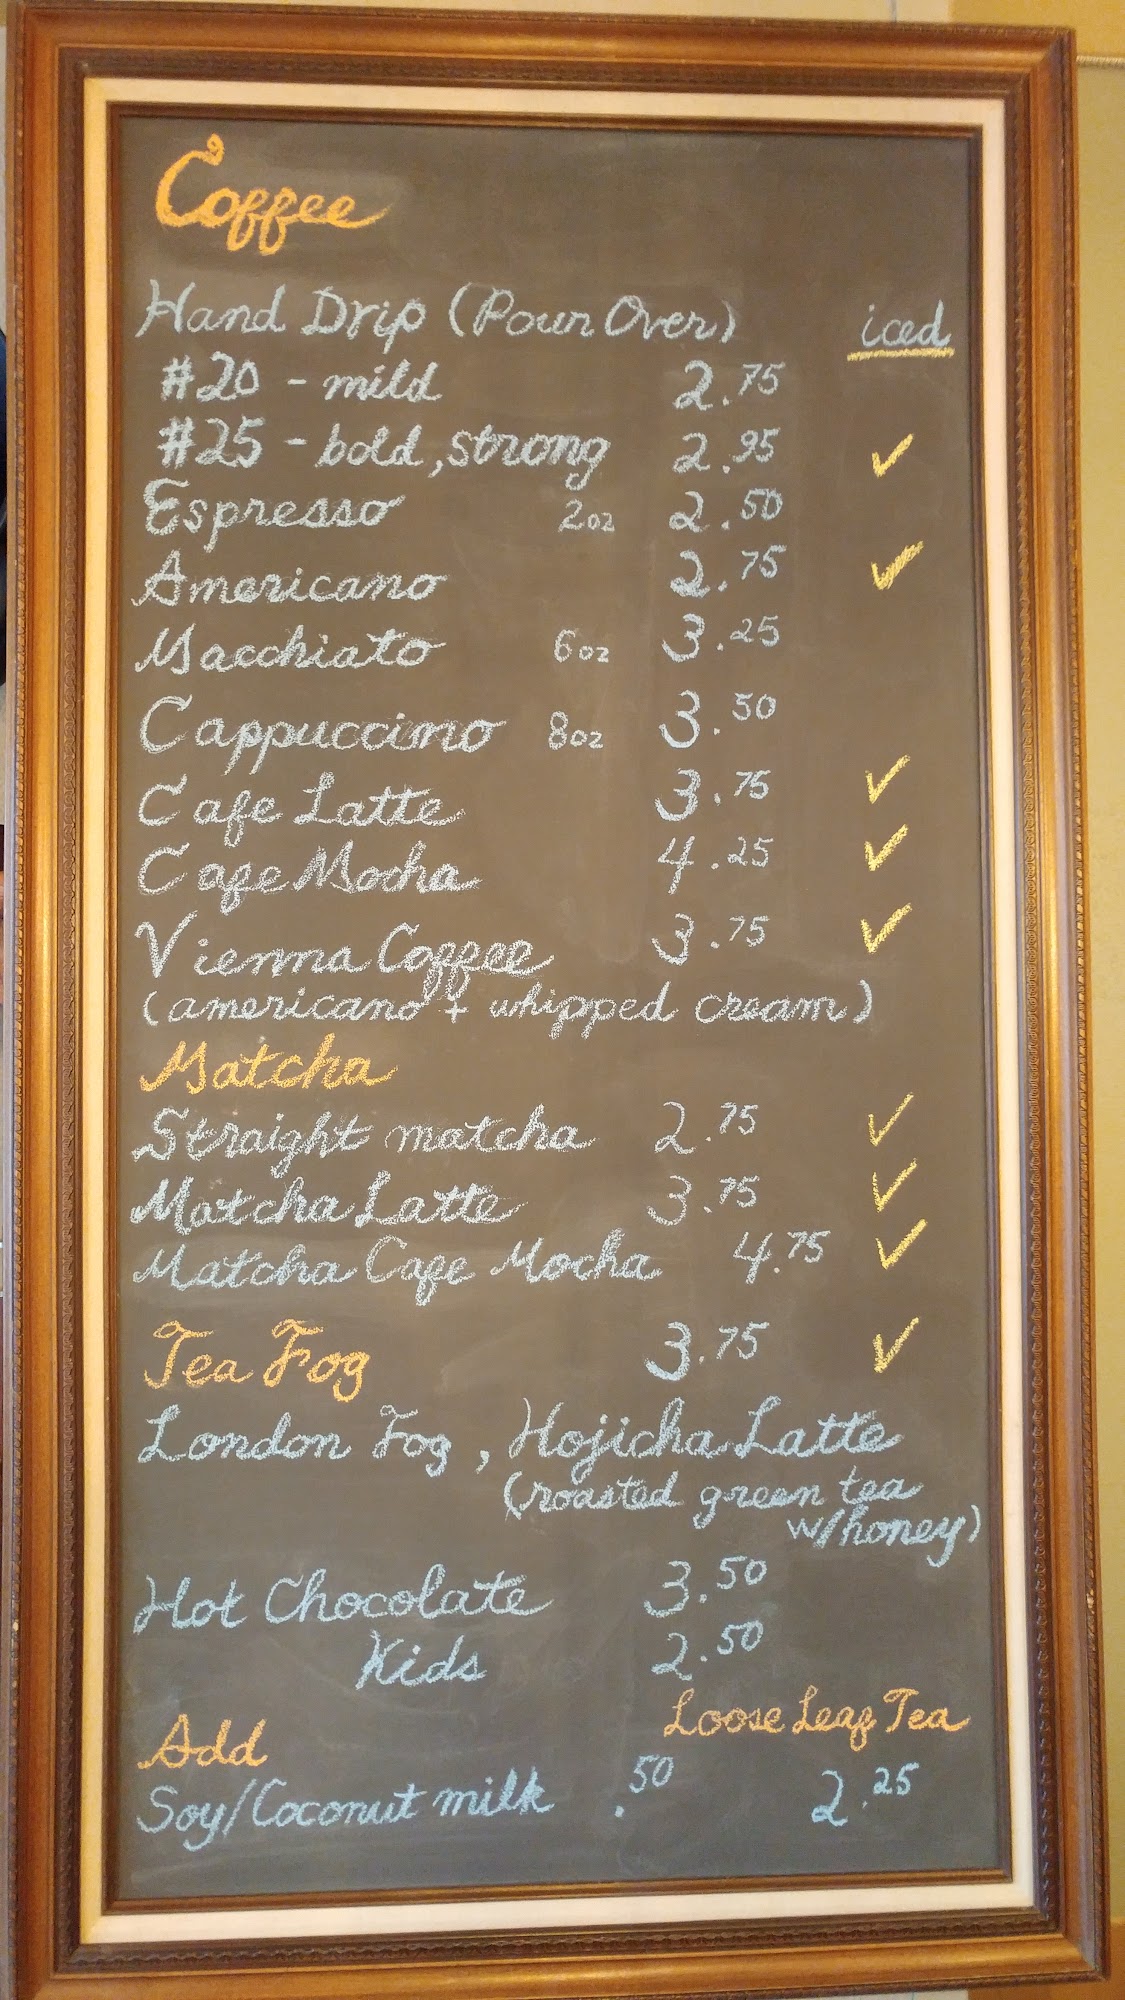 Coffee
Hand Drip (Pour Over) iced
#20 - mild 2.75
#25 - bold, strong 2.95 ✓
Espresso 2oz 2.50
Americano 2.75 ✓
Macchiato 6oz 3.25
Cappuccino 8oz 3.50
Cafe Latte 3.75 ✓
Cafe Mocha 4.25 ✓
Vienna Coffee 3.75 ✓
(americano + whipped cream)
Matcha
Straight matcha 2.75 ✓
Matcha Latte 3.75 ✓
Matcha Cafe Mocha 4.75 ✓
Tea Fog 3.75 ✓
London Fog, Hojicha Latte
(roasted green tea
w/honey)
Hot Chocolate 3.50
Kids 2.50
Loose Leaf Tea
Add
Soy/Coconut milk .50 2.25